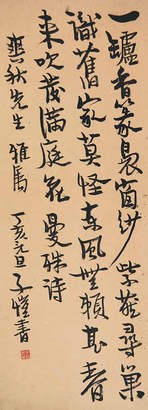 一罏香篆晨窗紗紫燕尋巢
識舊家莫怪東風無賴甚春
來吹發滿庭花曼殊詩
爽秋先生雅属
丁亥元旦子愷書